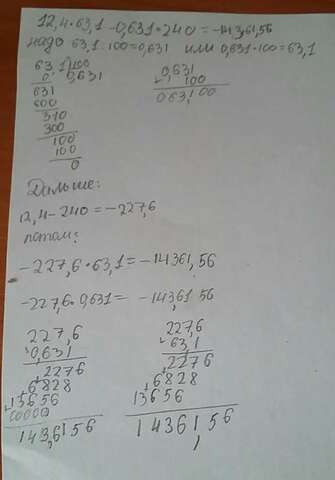 12,4·63,1-0,631·240=-14361,56
надо 63,1:100=0,631 или 0,631·100=63,1
63,1|100
0 0,631
631
600
310
300
100
100
0
0,631
100
063,100
Дальше:
12,4-240=-227,6
потом:
-227,6·63,1=-14361,56
-227,6·0,631= -14361 56
227,6
0,631
2276
6828
13656
00000
143,6156
227,6
63,1
2276
6828
13656
14361,56